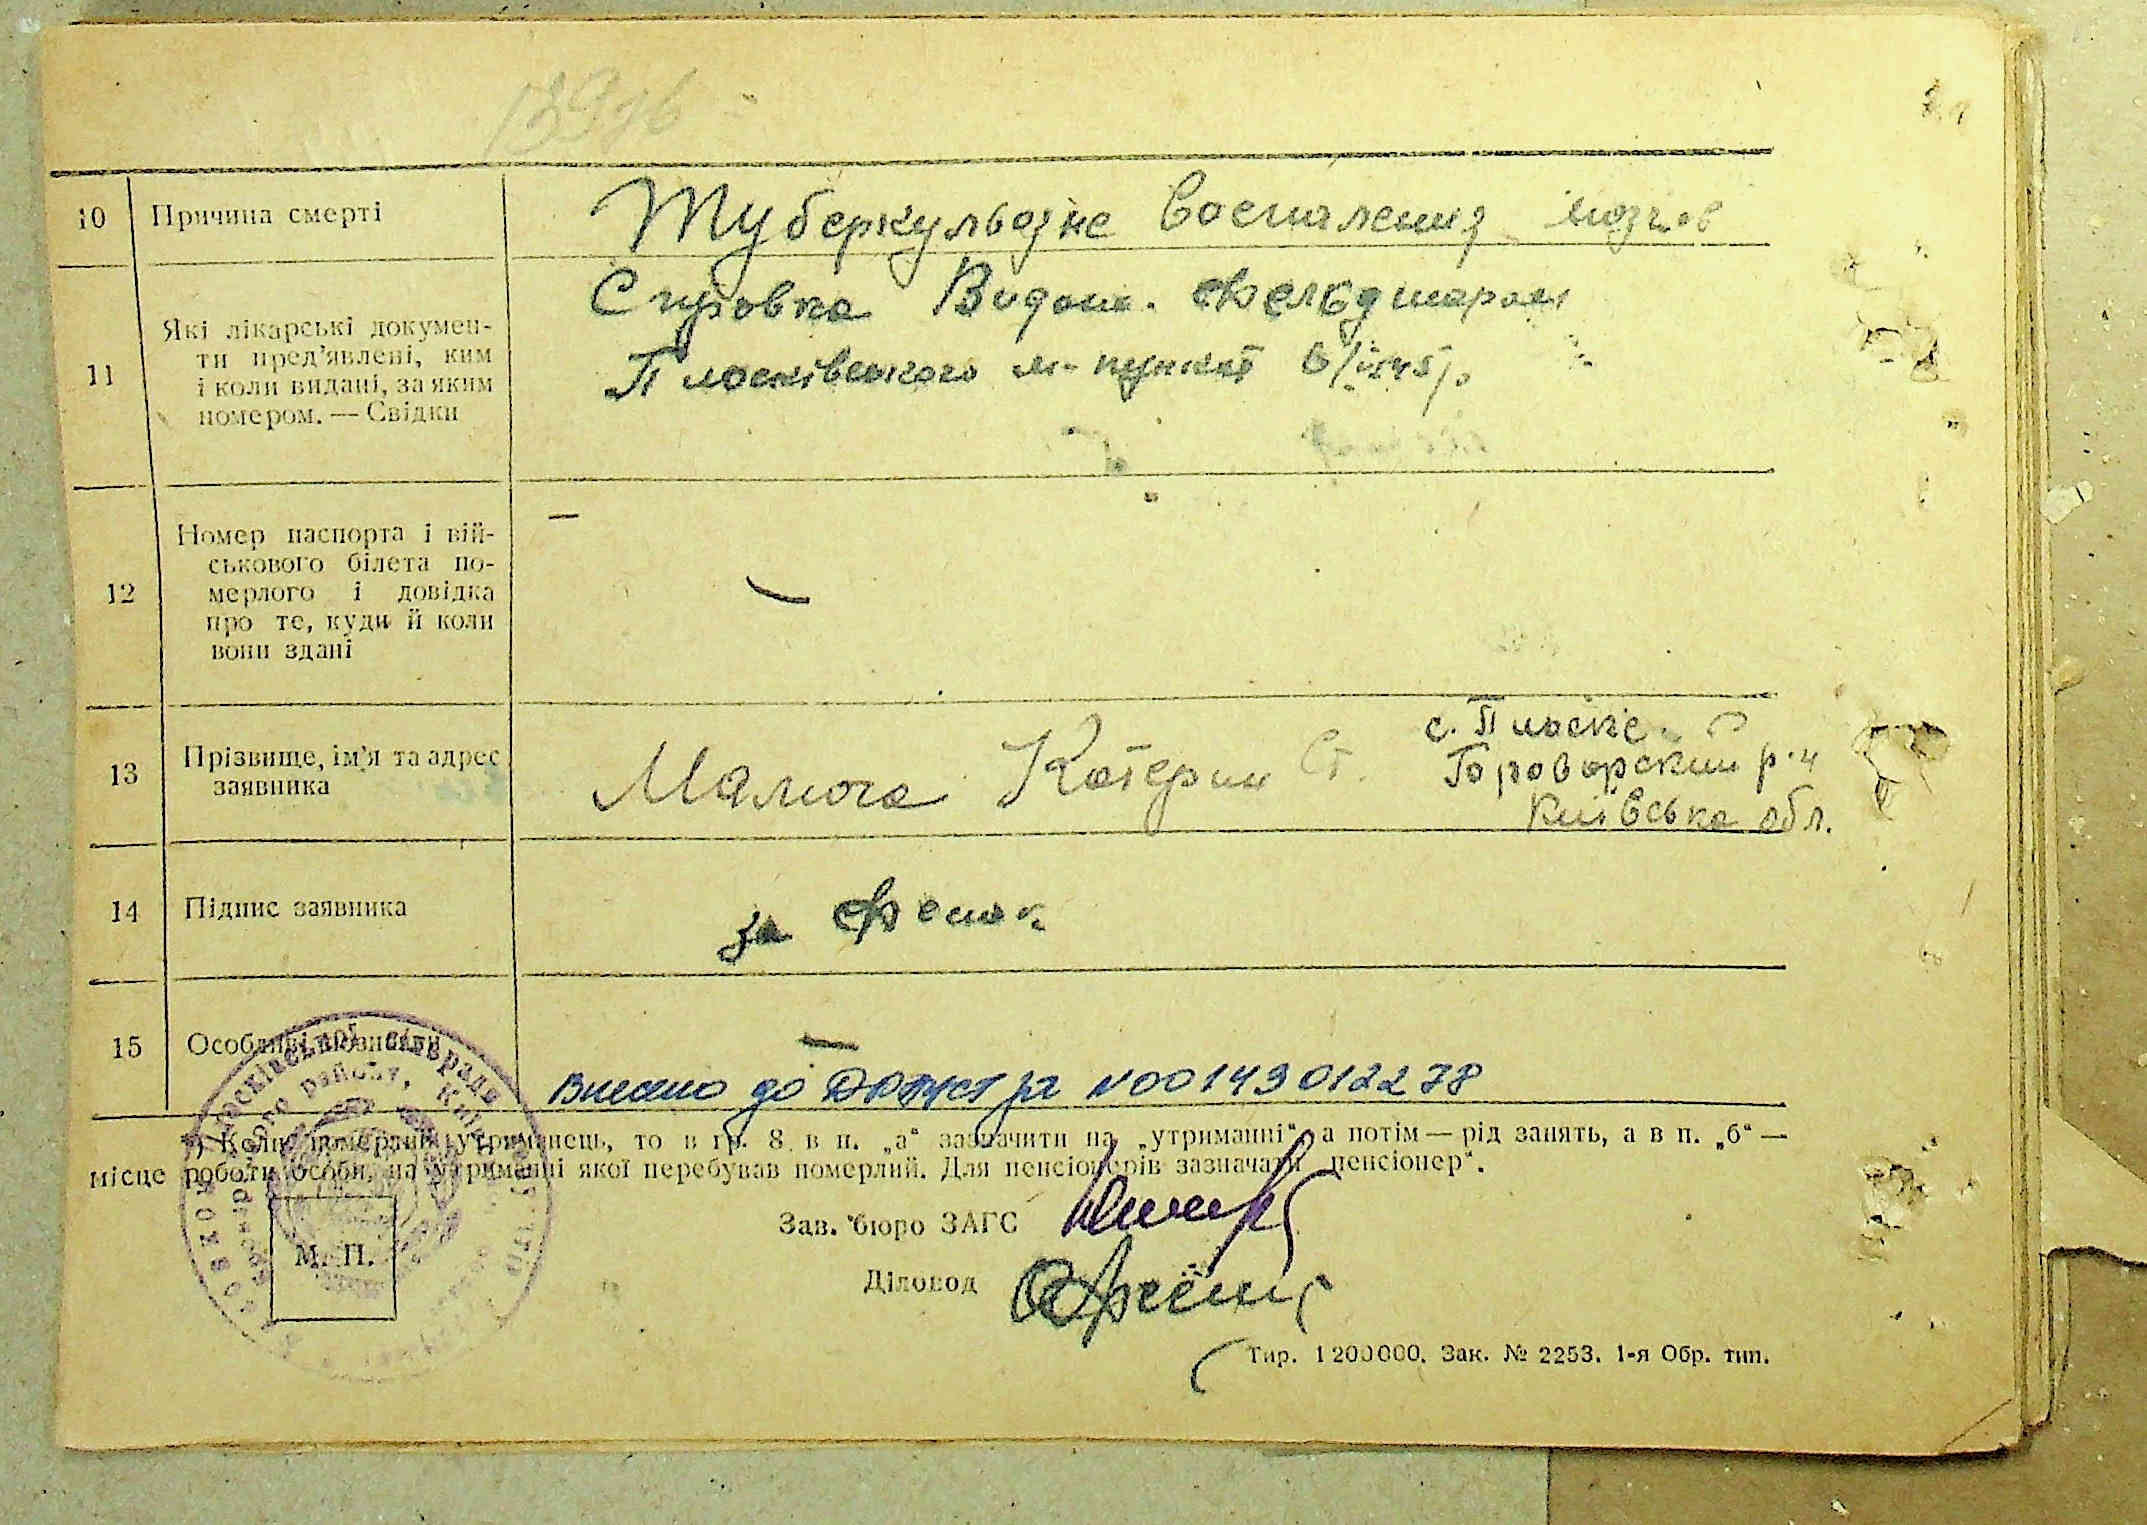 10 Причина смерті Туберкульозне Воспаления мозгов
11 Які лікарські докумен-
ти пред'явлені, ким
і коли видані, за яким
номером. — Свідки
Справка Видана. Фельдшаром
Плосківського м-пункта
12 Номер паспорта і вій-
ськового білета по-
мерлого і довідка
про те, куди й коли
вони здані
—
13 Прізвище, ім'я та адрес
заявника
Малюга Катерин Ст.
с. Плоске
р-н
Київська обл.
14 Підпис заявника за
15 Особливі позначки —
Внесено до ДРАЦСГ за N00143012278
*) Коли померлий утриманець, то в гр. 8 в п. „а" зазначити на „утриманні", а потім — рід занять, а в п. „б" —
місце роботи особи, на утриманні якої перебував померлий. Для пенсіонерів зазначати „пенсіонер".
Зав. бюро ЗАГС
Діловод
М. П.
Тир. 1200000. Зак. № 2253. 1-я Обр. тип.